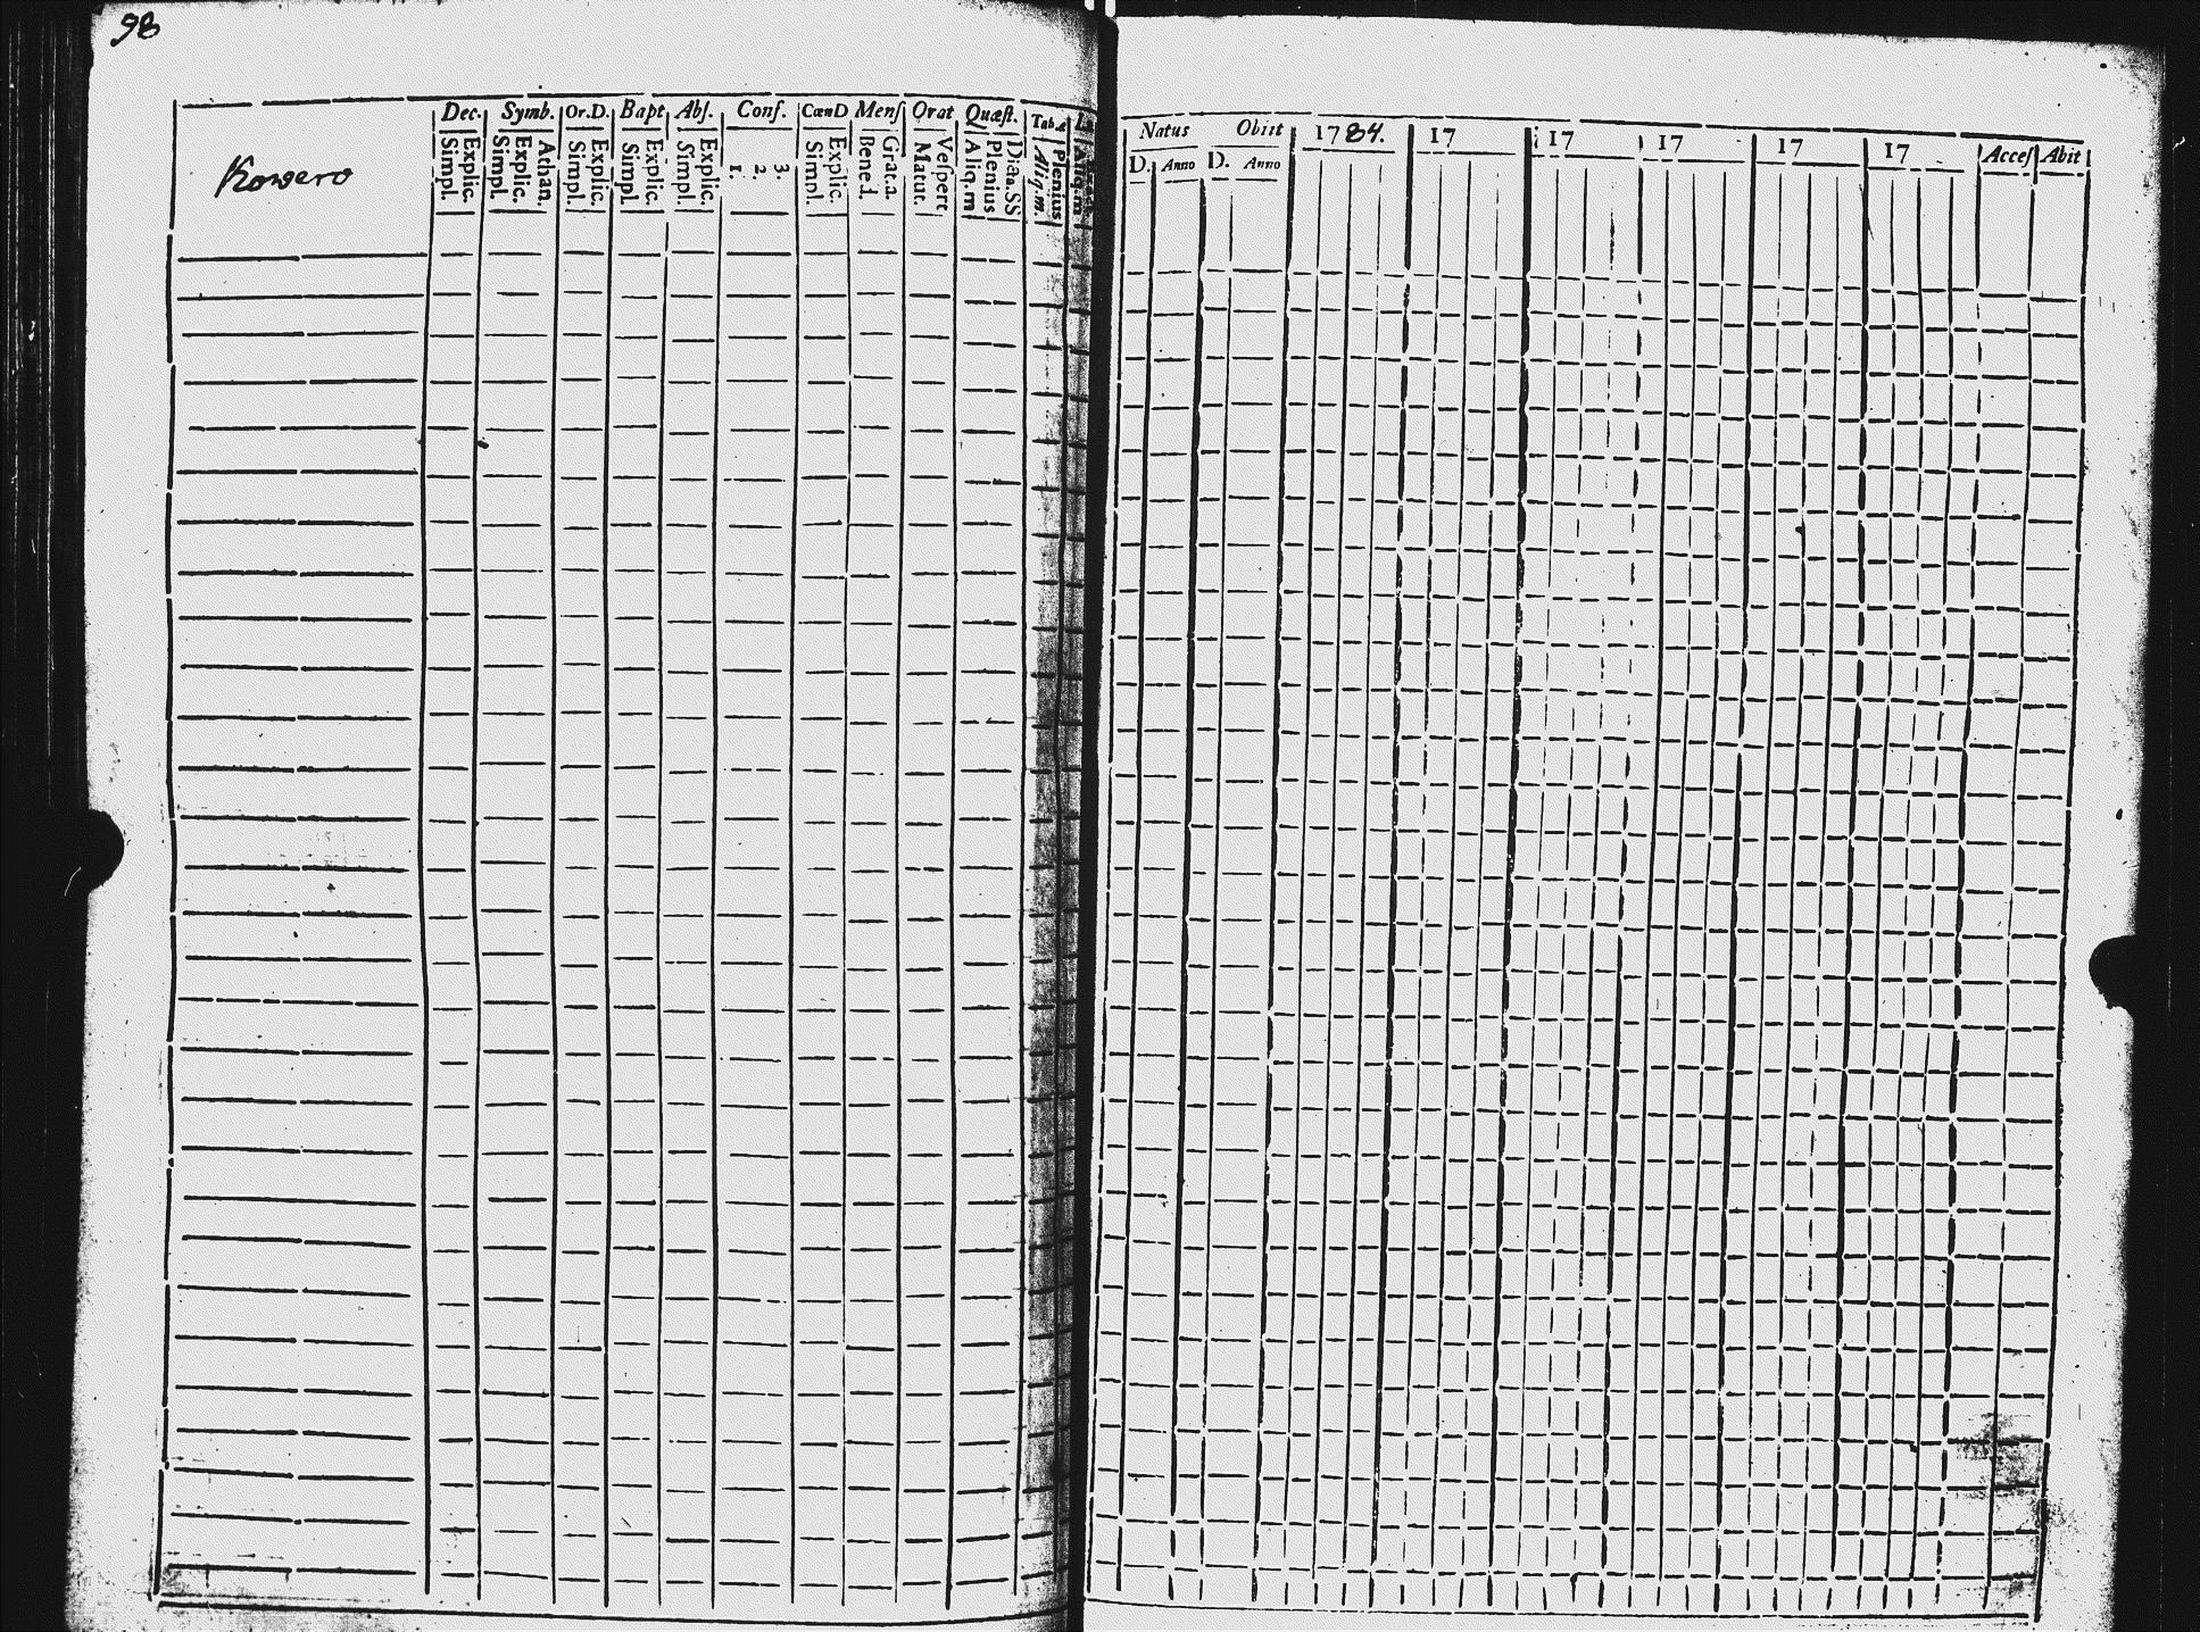 98
Kowero
Dec. Symb. Or.D. Bapt Abſ. Conf. CœnD Menſ Orat Quæſt. Tab.
Explic. Simpl.
Athan. Explic. Simpl.
Explic. Simpl.
Explic. Simpl.
Explic. Simpl.
3. 2. 1.
Explic. Simpl.
Grat.a. Bened.
Veſpert Matut.
Plenius Aliq.m
Plenius Aliq.m.
Aliq.m
Natus Obiit 1784. 17 17 17 17 17 Acceſ Abit
D. Anno D. Anno